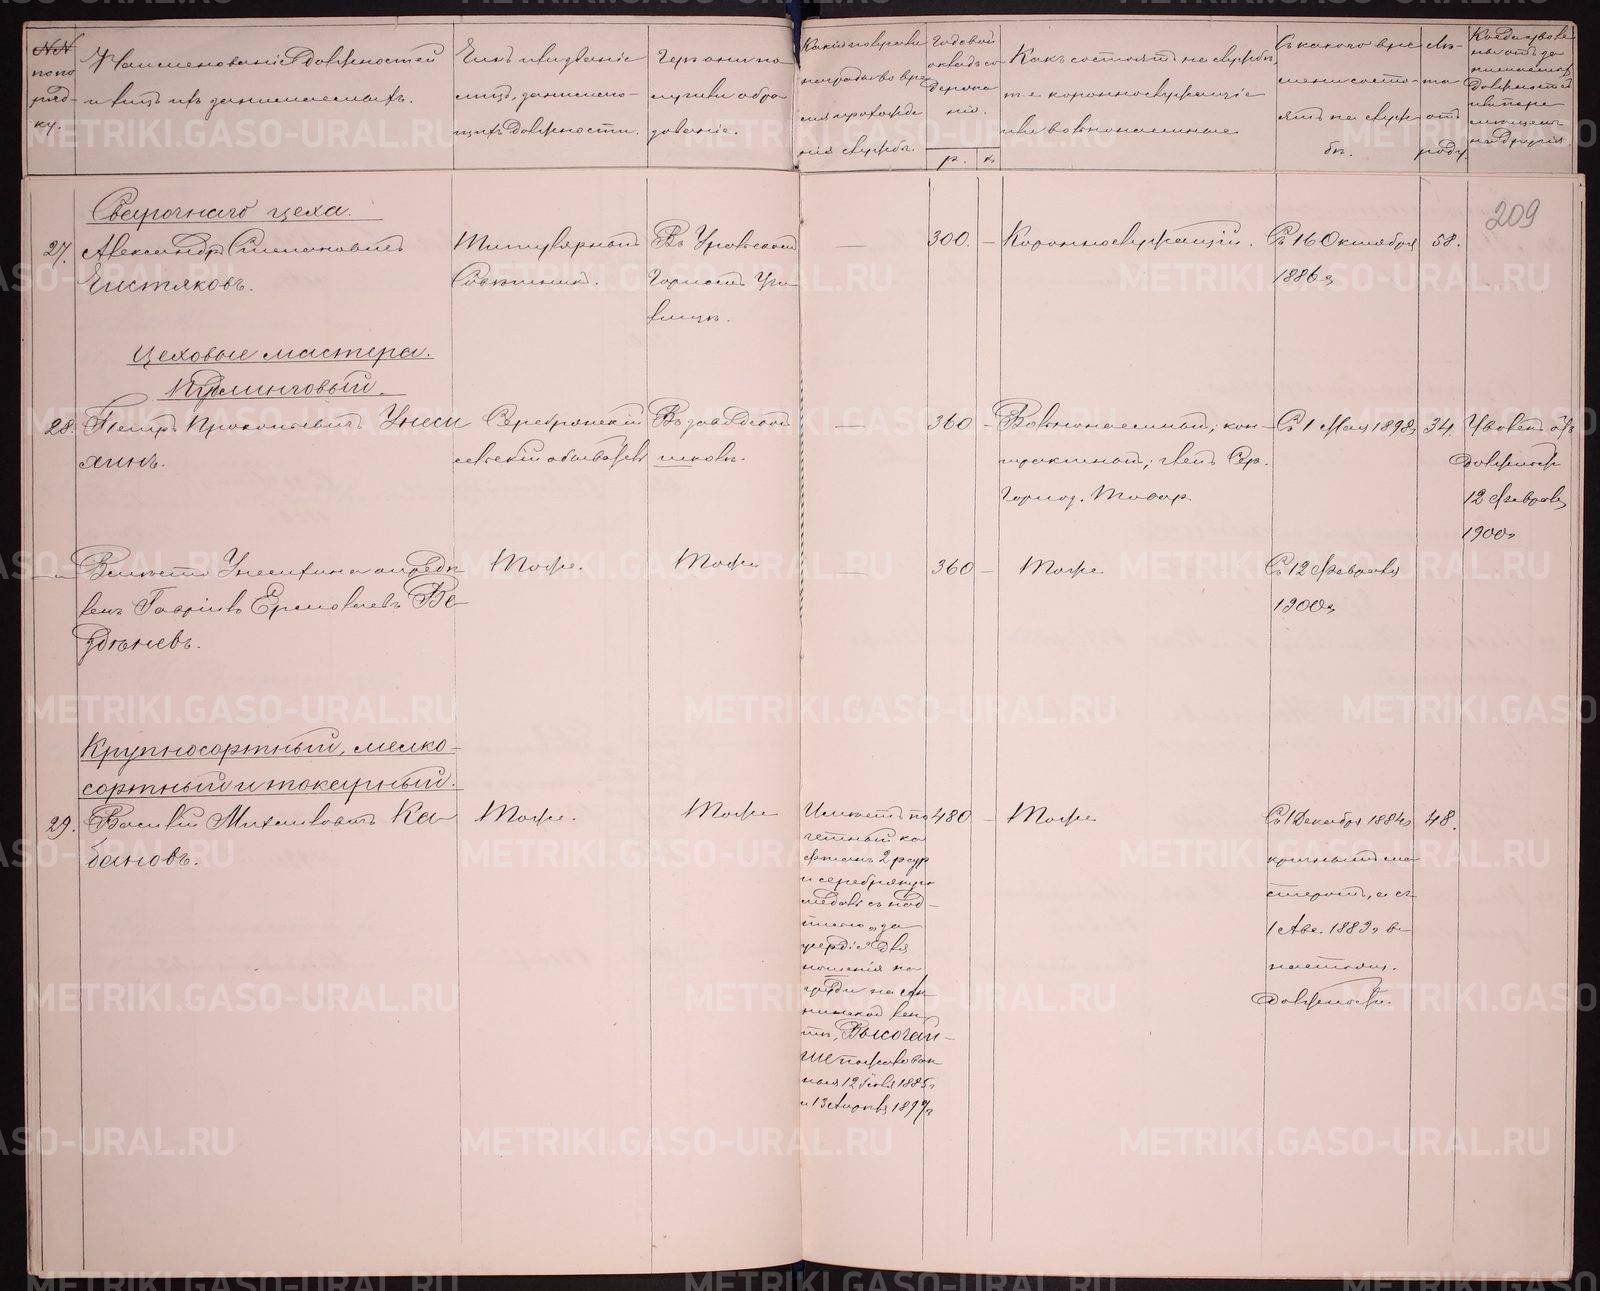 №№ по порядку.
Наименованіе должностей
и лицъ ихъ занимаемыхъ.
Чинъ или званіе
лицъ, занимаю-
щихъ должности.
Гдѣ они по-
лучили обра-
зованіе.
Какія получили
награды во вре-
мя прохожде-
нія службы.
Годовой
окладъ со-
держа-
нія.
р. к.
Какъ состоятъ на службѣ,
т. е. коронно служащіе
или вольнонаемные
Съ какого вре-
мени состо-
ятъ на служ-
бѣ.
Лѣ-
та
отъ
роду.
Когда уволе-
ны отъ за-
нимаемой
должности
или пере-
мѣщены
на другія.
209
Сварочнаго цеха.
27. Александръ Степановичъ
Чистяковъ.
Титулярный
Совѣтникъ.
Въ Уральскомъ
Горномъ Учи-
лищѣ.
— 300. — Короннослужащій.
Съ 16 Октября
1886 г.
58.
Цеховые мастера.
Пудлинговый.
28. Петръ Прокопьевичъ Унеси-
хинъ.
Серебрянскій
сельскій обыватель
Въ заводской
школѣ.
— 360 — Вольнонаемный, кон-
трактный, членъ Сер.
Горноз. Товар.
Съ 1 Мая 1898 г.
34.
Уволенъ отъ
должност.
12 Февраля
1900 г.
— Вмѣсто Унесихина опредѣ-
ленъ Гаврилъ Ермолаевъ Ве-
дѣневъ.
Тоже.
Тоже
— 360 — Тоже
Съ 12 Февраля
1900 г.
Крупносортный, мелко-
сортный и токарный.
29. Василій Михайловичъ Ка-
бановъ.
Тоже.
Тоже
Имѣетъ по-
четный ка-
фтанъ 2 разр
и серебряную
медаль съ над-
писью „за
усердіе" для
ношенія на
груди на Ан-
нинской лен-
тѣ, Высочай-
ше пожалован-
ныя 12 Іюля 1885 г.
и 13 Апрѣля 1897 г.
480 — Тоже
Съ 1 Декабря 1884 г.
кричнымъ ма-
стеромъ, а съ
1 Авг. 1889 г. въ
настоящ.
должности.
48.
METRIKI.GASO-URAL.RU